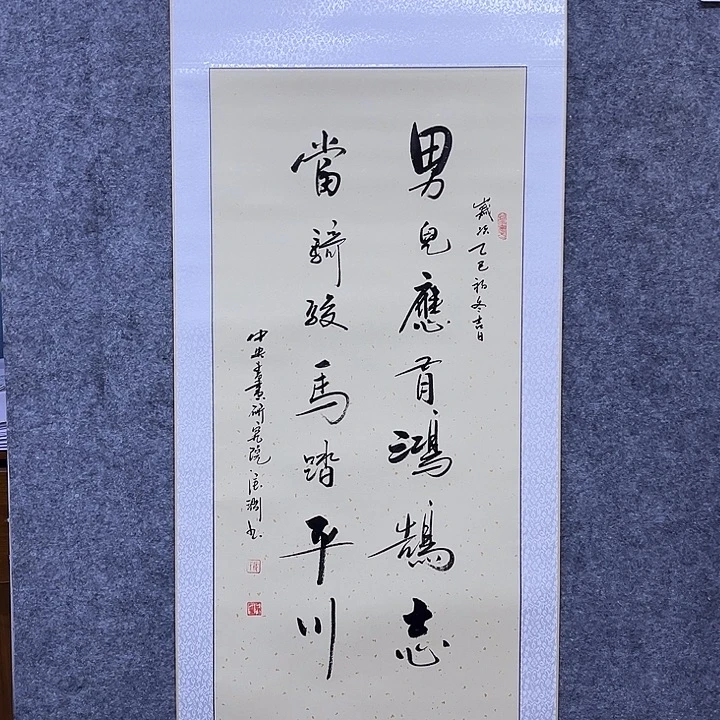 歲次乙巳初冬吉日
男兒應有鴻鵠志
當騎駿馬踏平川
中央書畫研究院